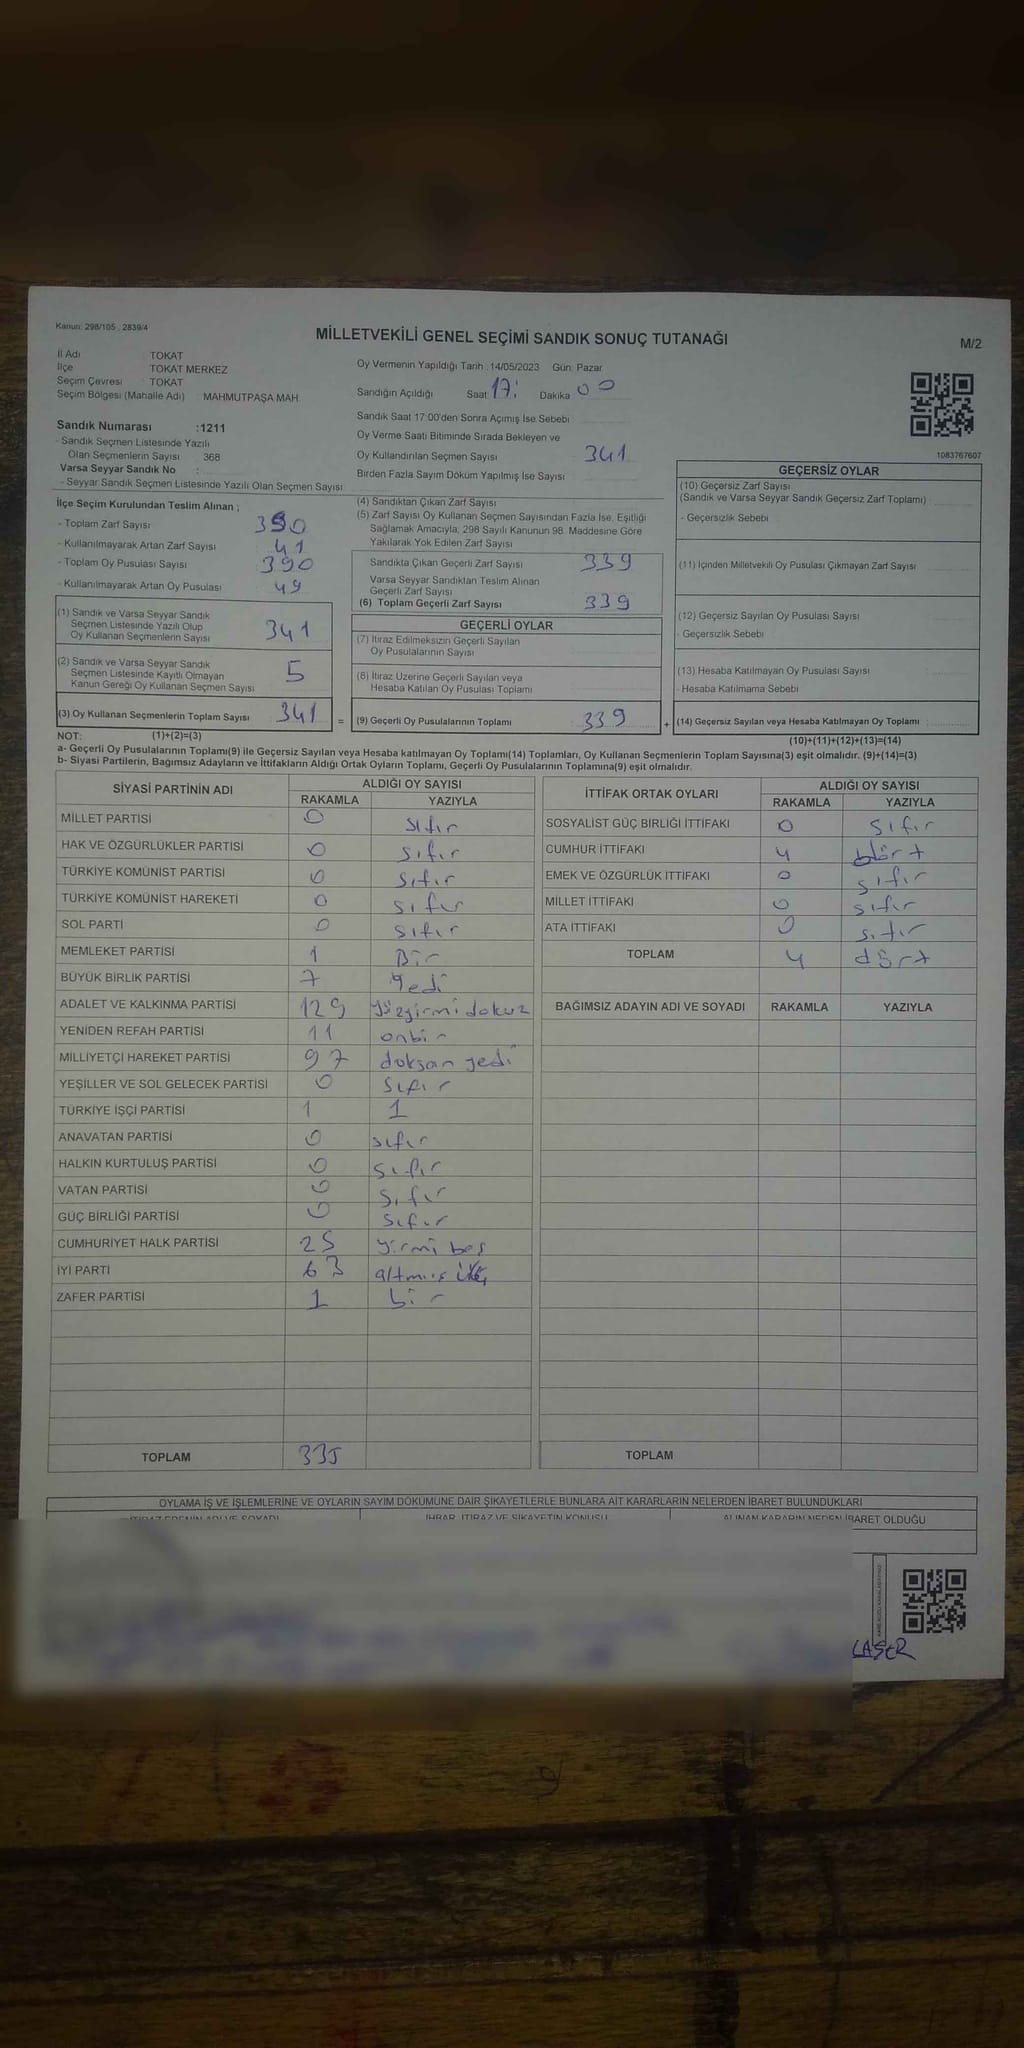 Kanun: 298/105 , 2839/4
MİLLETVEKİLİ GENEL SEÇİMİ SANDIK SONUÇ TUTANAĞI
M/2
İl Adı TOKAT
İlçe TOKAT MERKEZ
Seçim Çevresi : TOKAT
Seçim Bölgesi (Mahalle Adı) : MAHMUTPAŞA MAH.
Oy Vermenin Yapıldığı Tarih : 14/05/2023 Gün: Pazar
Sandığın Açıldığı Saat 17: Dakika 00
Sandık Saat 17:00'den Sonra Açımış İse Sebebi
Oy Verme Saati Bitiminde Sırada Bekleyen ve
Oy Kullandırılan Seçmen Sayısı 341
Birden Fazla Sayım Döküm Yapılmış İse Sayısı
1083767607
Sandık Numarası :1211
- Sandık Seçmen Listesinde Yazılı
Olan Seçmenlerin Sayısı : 368
Varsa Seyyar Sandık No :
- Seyyar Sandık Seçmen Listesinde Yazılı Olan Seçmen Sayısı
İlçe Seçim Kurulundan Teslim Alınan ;
- Toplam Zarf Sayısı 390
- Kullanılmayarak Artan Zarf Sayısı 41
- Toplam Oy Pusulası Sayısı 390
- Kullanılmayarak Artan Oy Pusulası 49
(1) Sandık ve Varsa Seyyar Sandık
Seçmen Listesinde Yazılı Olup
Oy Kullanan Seçmenlerin Sayısı 341
(2) Sandık ve Varsa Seyyar Sandık
Seçmen Listesinde Kayıtlı Olmayan
Kanun Gereği Oy Kullanan Seçmen Sayısı 5
(3) Oy Kullanan Seçmenlerin Toplam Sayısı 341 =
(4) Sandıktan Çıkan Zarf Sayısı
(5) Zarf Sayısı Oy Kullanan Seçmen Sayısından Fazla İse, Eşitliği
Sağlamak Amacıyla; 298 Sayılı Kanunun 98. Maddesine Göre
Yakılarak Yok Edilen Zarf Sayısı
Sandıkta Çıkan Geçerli Zarf Sayısı 339
Varsa Seyyar Sandıktan Teslim Alınan
Geçerli Zarf Sayısı
(6) Toplam Geçerli Zarf Sayısı 339
GEÇERLİ OYLAR
(7) İtiraz Edilmeksizin Geçerli Sayılan
Oy Pusulalarının Sayısı
(8) İtiraz Üzerine Geçerli Sayılan veya
Hesaba Katılan Oy Pusulası Toplamı
(9) Geçerli Oy Pusulalarının Toplamı 339 +
GEÇERSİZ OYLAR
(10) Geçersiz Zarf Sayısı
(Sandık ve Varsa Seyyar Sandık Geçersiz Zarf Toplamı)
- Geçersizlik Sebebi
(11) İçinden Milletvekili Oy Pusulası Çıkmayan Zarf Sayısı
(12) Geçersiz Sayılan Oy Pusulası Sayısı
- Geçersizlik Sebebi
(13) Hesaba Katılmayan Oy Pusulası Sayısı
- Hesaba Katılmama Sebebi
(14) Geçersiz Sayılan veya Hesaba Katılmayan Oy Toplamı
NOT: (1)+(2)=(3)
(10)+(11)+(12)+(13)=(14)
a- Geçerli Oy Pusulalarının Toplamı(9) ile Geçersiz Sayılan veya Hesaba katılmayan Oy Toplamı(14) Toplamları, Oy Kullanan Seçmenlerin Toplam Sayısına(3) eşit olmalıdır. (9)+(14)=(3)
b- Siyasi Partilerin, Bağımsız Adayların ve İttifakların Aldığı Ortak Oyların Toplamı, Geçerli Oy Pusulalarının Toplamına(9) eşit olmalıdır.
SİYASİ PARTİNİN ADI ALDIĞI OY SAYISI
RAKAMLA YAZIYLA
MİLLET PARTİSİ 0 sıfır
HAK VE ÖZGÜRLÜKLER PARTİSİ 0 sıfır
TÜRKİYE KOMÜNİST PARTİSİ 0 sıfır
TÜRKİYE KOMÜNİST HAREKETİ 0 sıfır
SOL PARTİ 0 sıfır
MEMLEKET PARTİSİ 1 Bir
BÜYÜK BİRLİK PARTİSİ 7 yedi
ADALET VE KALKINMA PARTİSİ 129 yüzyirmidokuz
YENİDEN REFAH PARTİSİ 11 onbir
MİLLİYETÇİ HAREKET PARTİSİ 97 doksan yedi
YEŞİLLER VE SOL GELECEK PARTİSİ 0 sıfır
TÜRKİYE İŞÇİ PARTİSİ 1 1
ANAVATAN PARTİSİ 0 sıfır
HALKIN KURTULUŞ PARTİSİ 0 sıfır
VATAN PARTİSİ 0 sıfır
GÜÇ BİRLİĞİ PARTİSİ 0 sıfır
CUMHURİYET HALK PARTİSİ 25 yirmi beş
İYİ PARTİ 63 altmış
ZAFER PARTİSİ 1 bir
TOPLAM 335
İTTİFAK ORTAK OYLARI ALDIĞI OY SAYISI
RAKAMLA YAZIYLA
SOSYALİST GÜÇ BİRLİĞİ İTTİFAKI 0 sıfır
CUMHUR İTTİFAKI 4 dört
EMEK VE ÖZGÜRLÜK İTTİFAKI 0 sıfır
MİLLET İTTİFAKI 0 sıfır
ATA İTTİFAKI 0 sıfır
TOPLAM 4 dört
BAĞIMSIZ ADAYIN ADI VE SOYADI RAKAMLA YAZIYLA
TOPLAM
OYLAMA İŞ VE İŞLEMLERİNE VE OYLARIN SAYIM DÖKÜMÜNE DAİR ŞİKAYETLERLE BUNLARA AİT KARARLARIN NELERDEN İBARET BULUNDUKLARI
İTİRAZ EDENİN ADI VE SOYADI İHBAR, İTİRAZ VE ŞİKAYETİN KONUSU ALINAN KARARIN NEDEN İBARET OLDUĞU